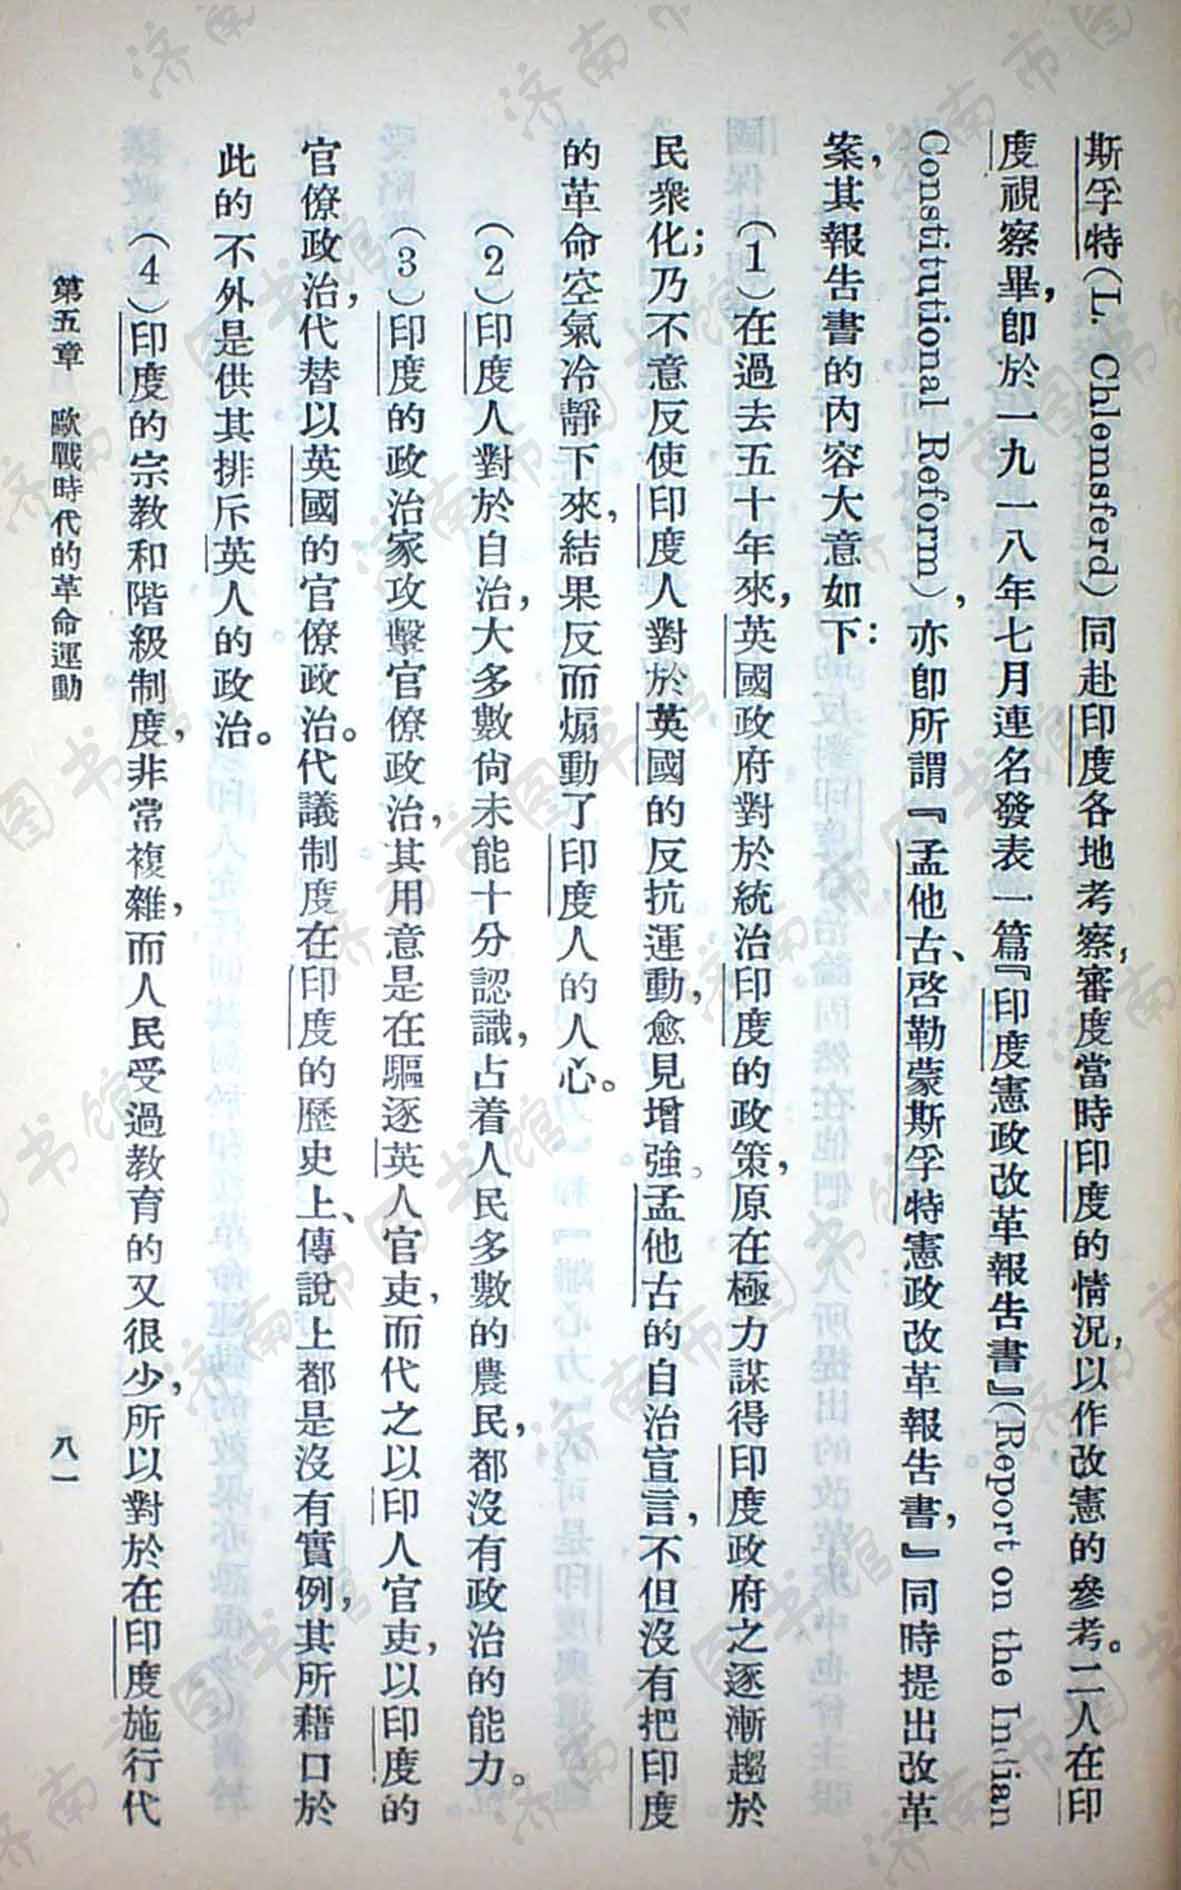 斯孚特(L. Chlomsferd)同赴印度各地考察,審度當時印度的情況,以作改憲的參考。二人在印
度視察畢,卽於一九一八年七月連名發表一篇『印度憲政改革報告書』(Report on the Indian
Constitutional Reform),亦卽所謂『孟他古、啓勒蒙斯孚特憲政改革報告書,』同時提出改革
案,其報告書的內容大意如下:
(1)在過去五十年來,英國政府對於統治印度的政策,原在極力謀得印度政府之逐漸趨於
民衆化;乃不意反使印度人對於英國的反抗運動,愈見增強。孟他古的自治宣言,不但沒有把印度
的革命空氣冷靜下來,結果反而煽動了印度人的人心。
(2)印度人對於自治,大多數尙未能十分認識,占着人民多數的農民,都沒有政治的能力。
(3)印度的政治家攻擊官僚政治,其用意是在驅逐英人官吏,而代之以印人官吏,以印度的
官僚政治,代替以英國的官僚政治。代議制度在印度的歷史上、傳說上都是沒有實例,其所藉口於
此的不外是供其排斥英人的政治。
(4)印度的宗教和階級制度,非常複雜,而人民受過教育的又很少,所以對於在印度施行代
第五章 歐戰時代的革命運動
八一
济南市图书馆